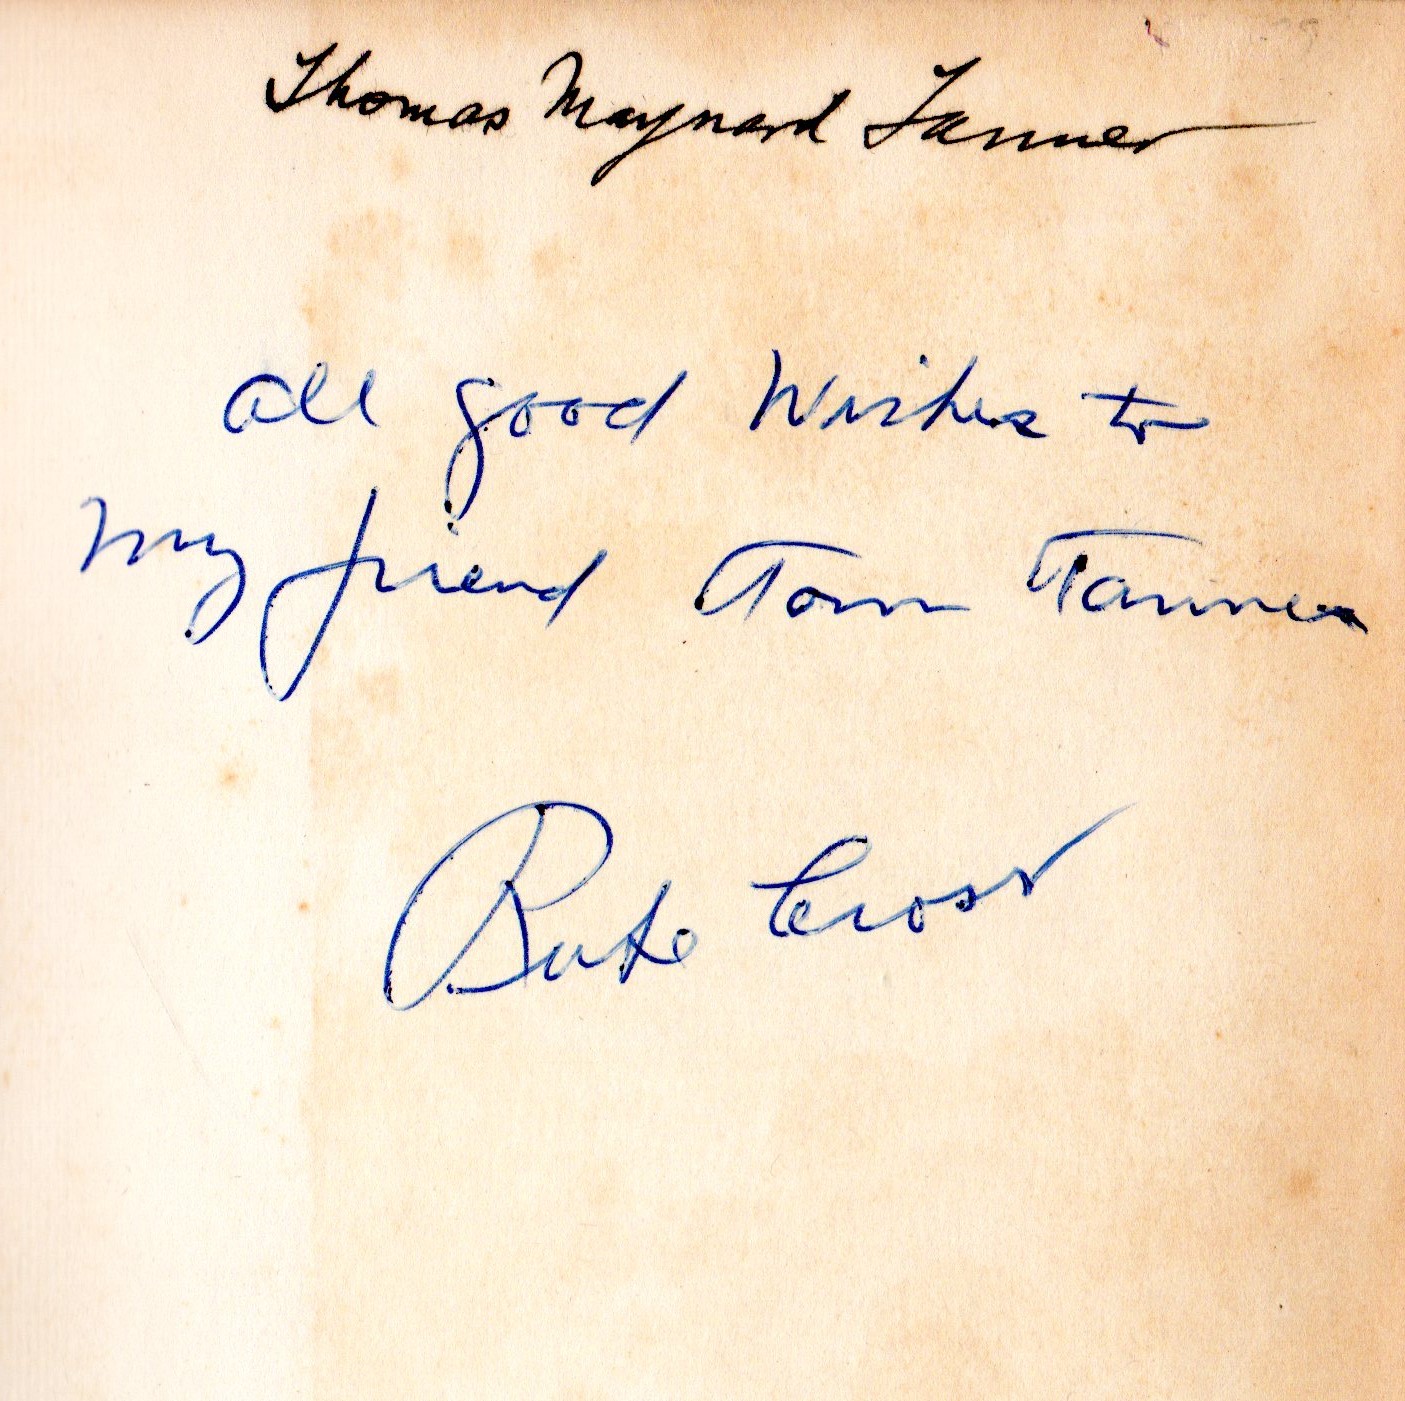 Thomas Maynard Tanner
All good Wishes to
my friend Tom Tanner
Cross